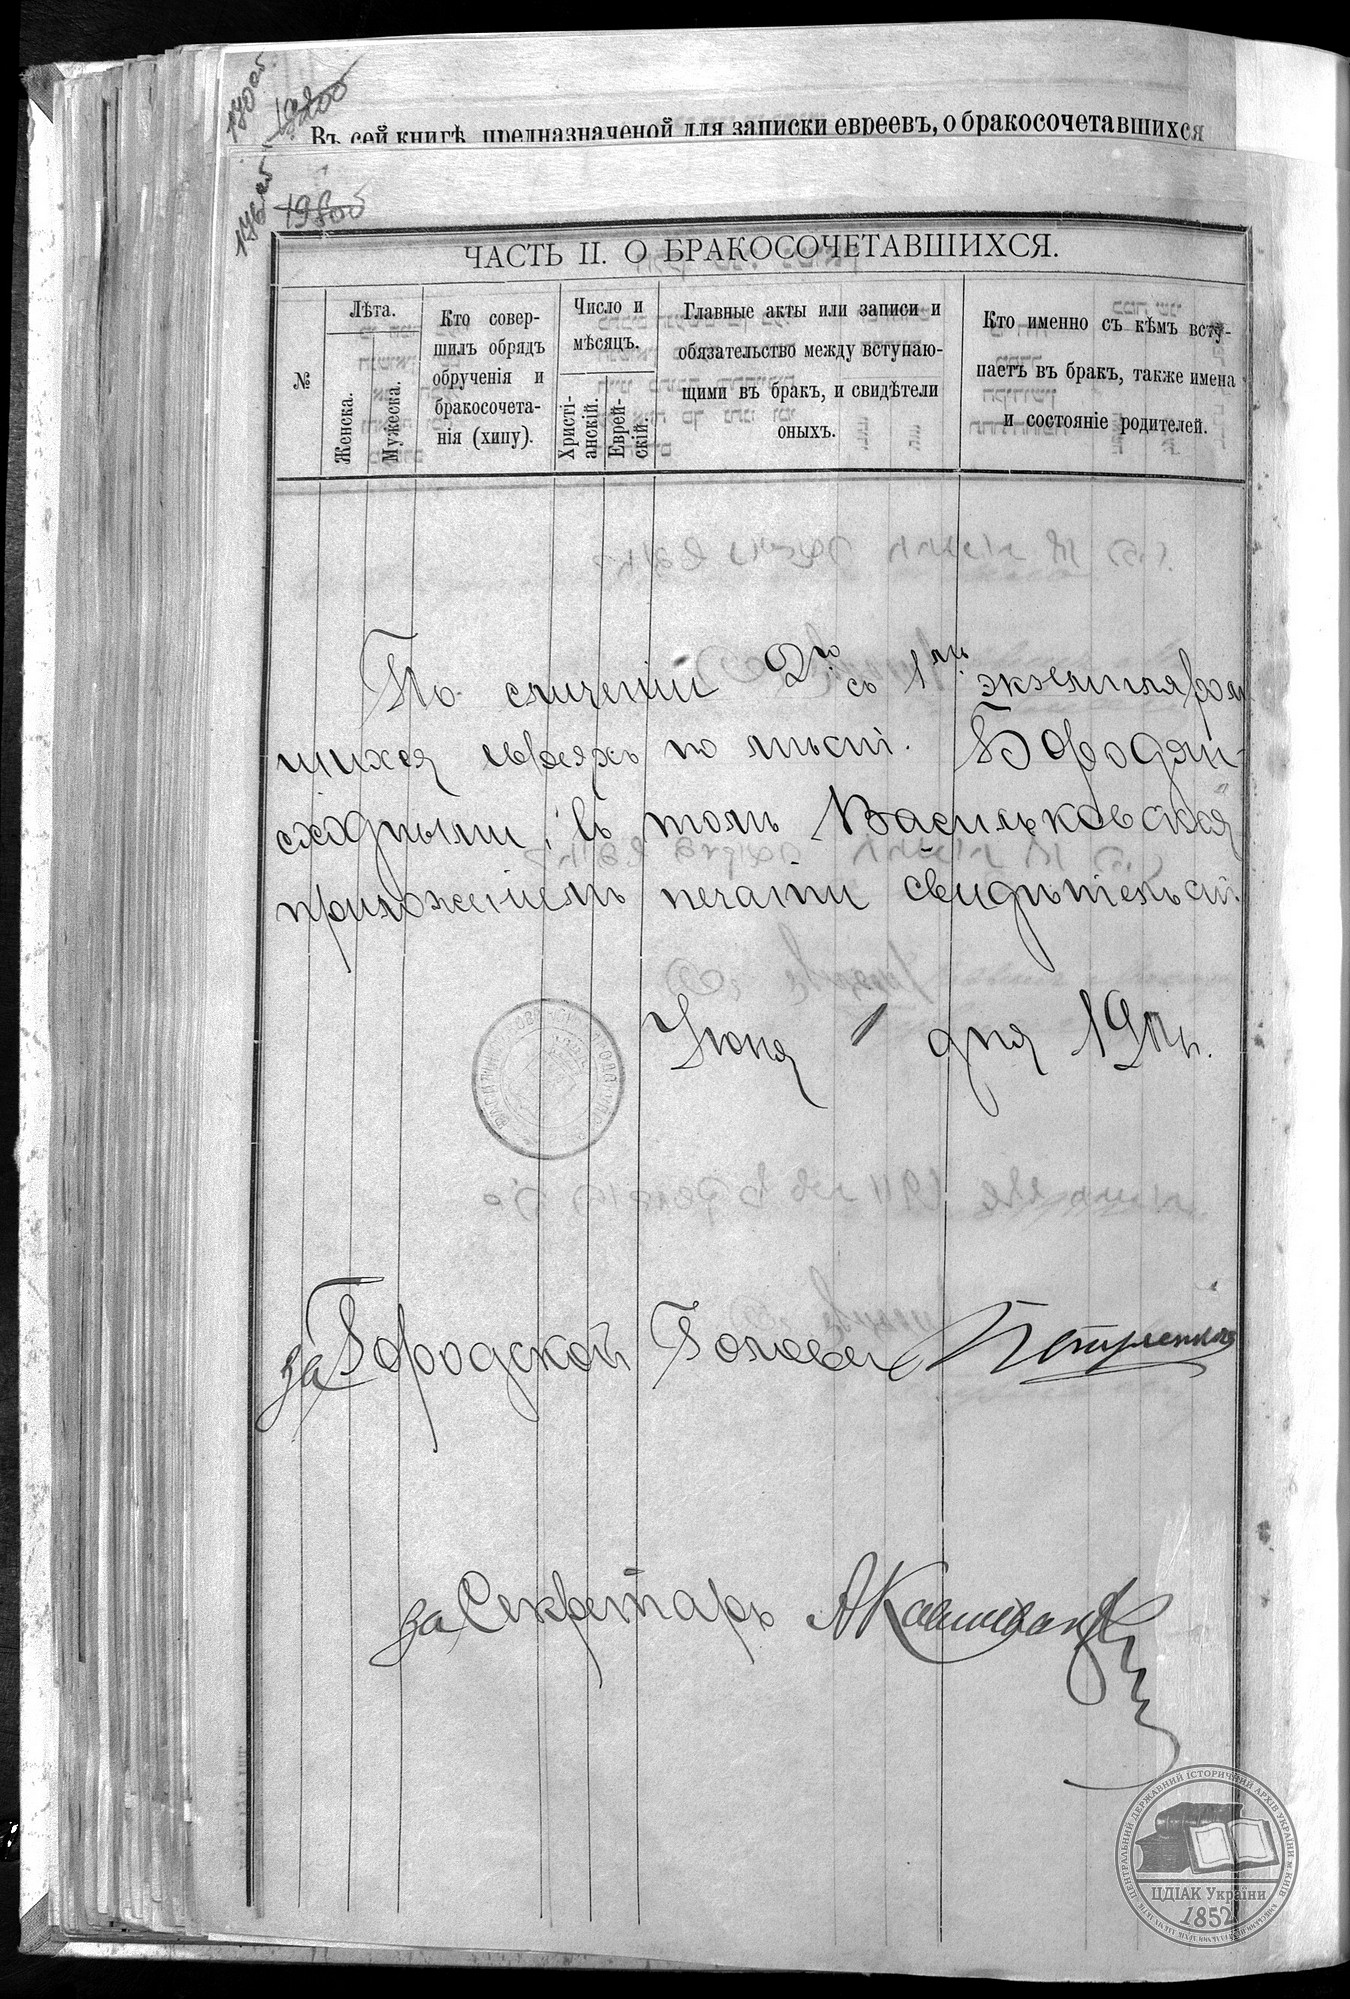 170 об.
192об
Въ сей книгѣ, предназначеной для записки евреевъ, о бракосочетавшихся
176 об
198об
ЧАСТЬ II. О БРАКОСОЧЕТАВШИХСЯ.
№
Лѣта.
Женска.
Мужеска.
Кто совер-
шилъ обрядъ
обрученія и
бракосочета-
нія (хипу).
Число и
мѣсяцъ.
Христі-
анскій.
Еврей-
скій.
Главные акты или записи и
обязательство между вступаю-
щими въ бракъ, и свидѣтели
оныхъ.
Кто именно съ кѣмъ всту-
паетъ въ бракъ, также имена
и состояніе родителей.
По сличеніи 2го съ 1мъ экземпляром
шихся евреяхъ по мѣст. Бородян-
сходными; въ томъ Васильковская
приложеніемъ печати свидѣтельст.
Іюня 1 дня 1911г.
за Городской Голова
за Секретарь
ЦЕНТРАЛЬНИЙ ДЕРЖАВНИЙ ІСТОРИЧНИЙ АРХІВ УКРАЇНИ М. КИЇВ
ЦДІАК України
1852